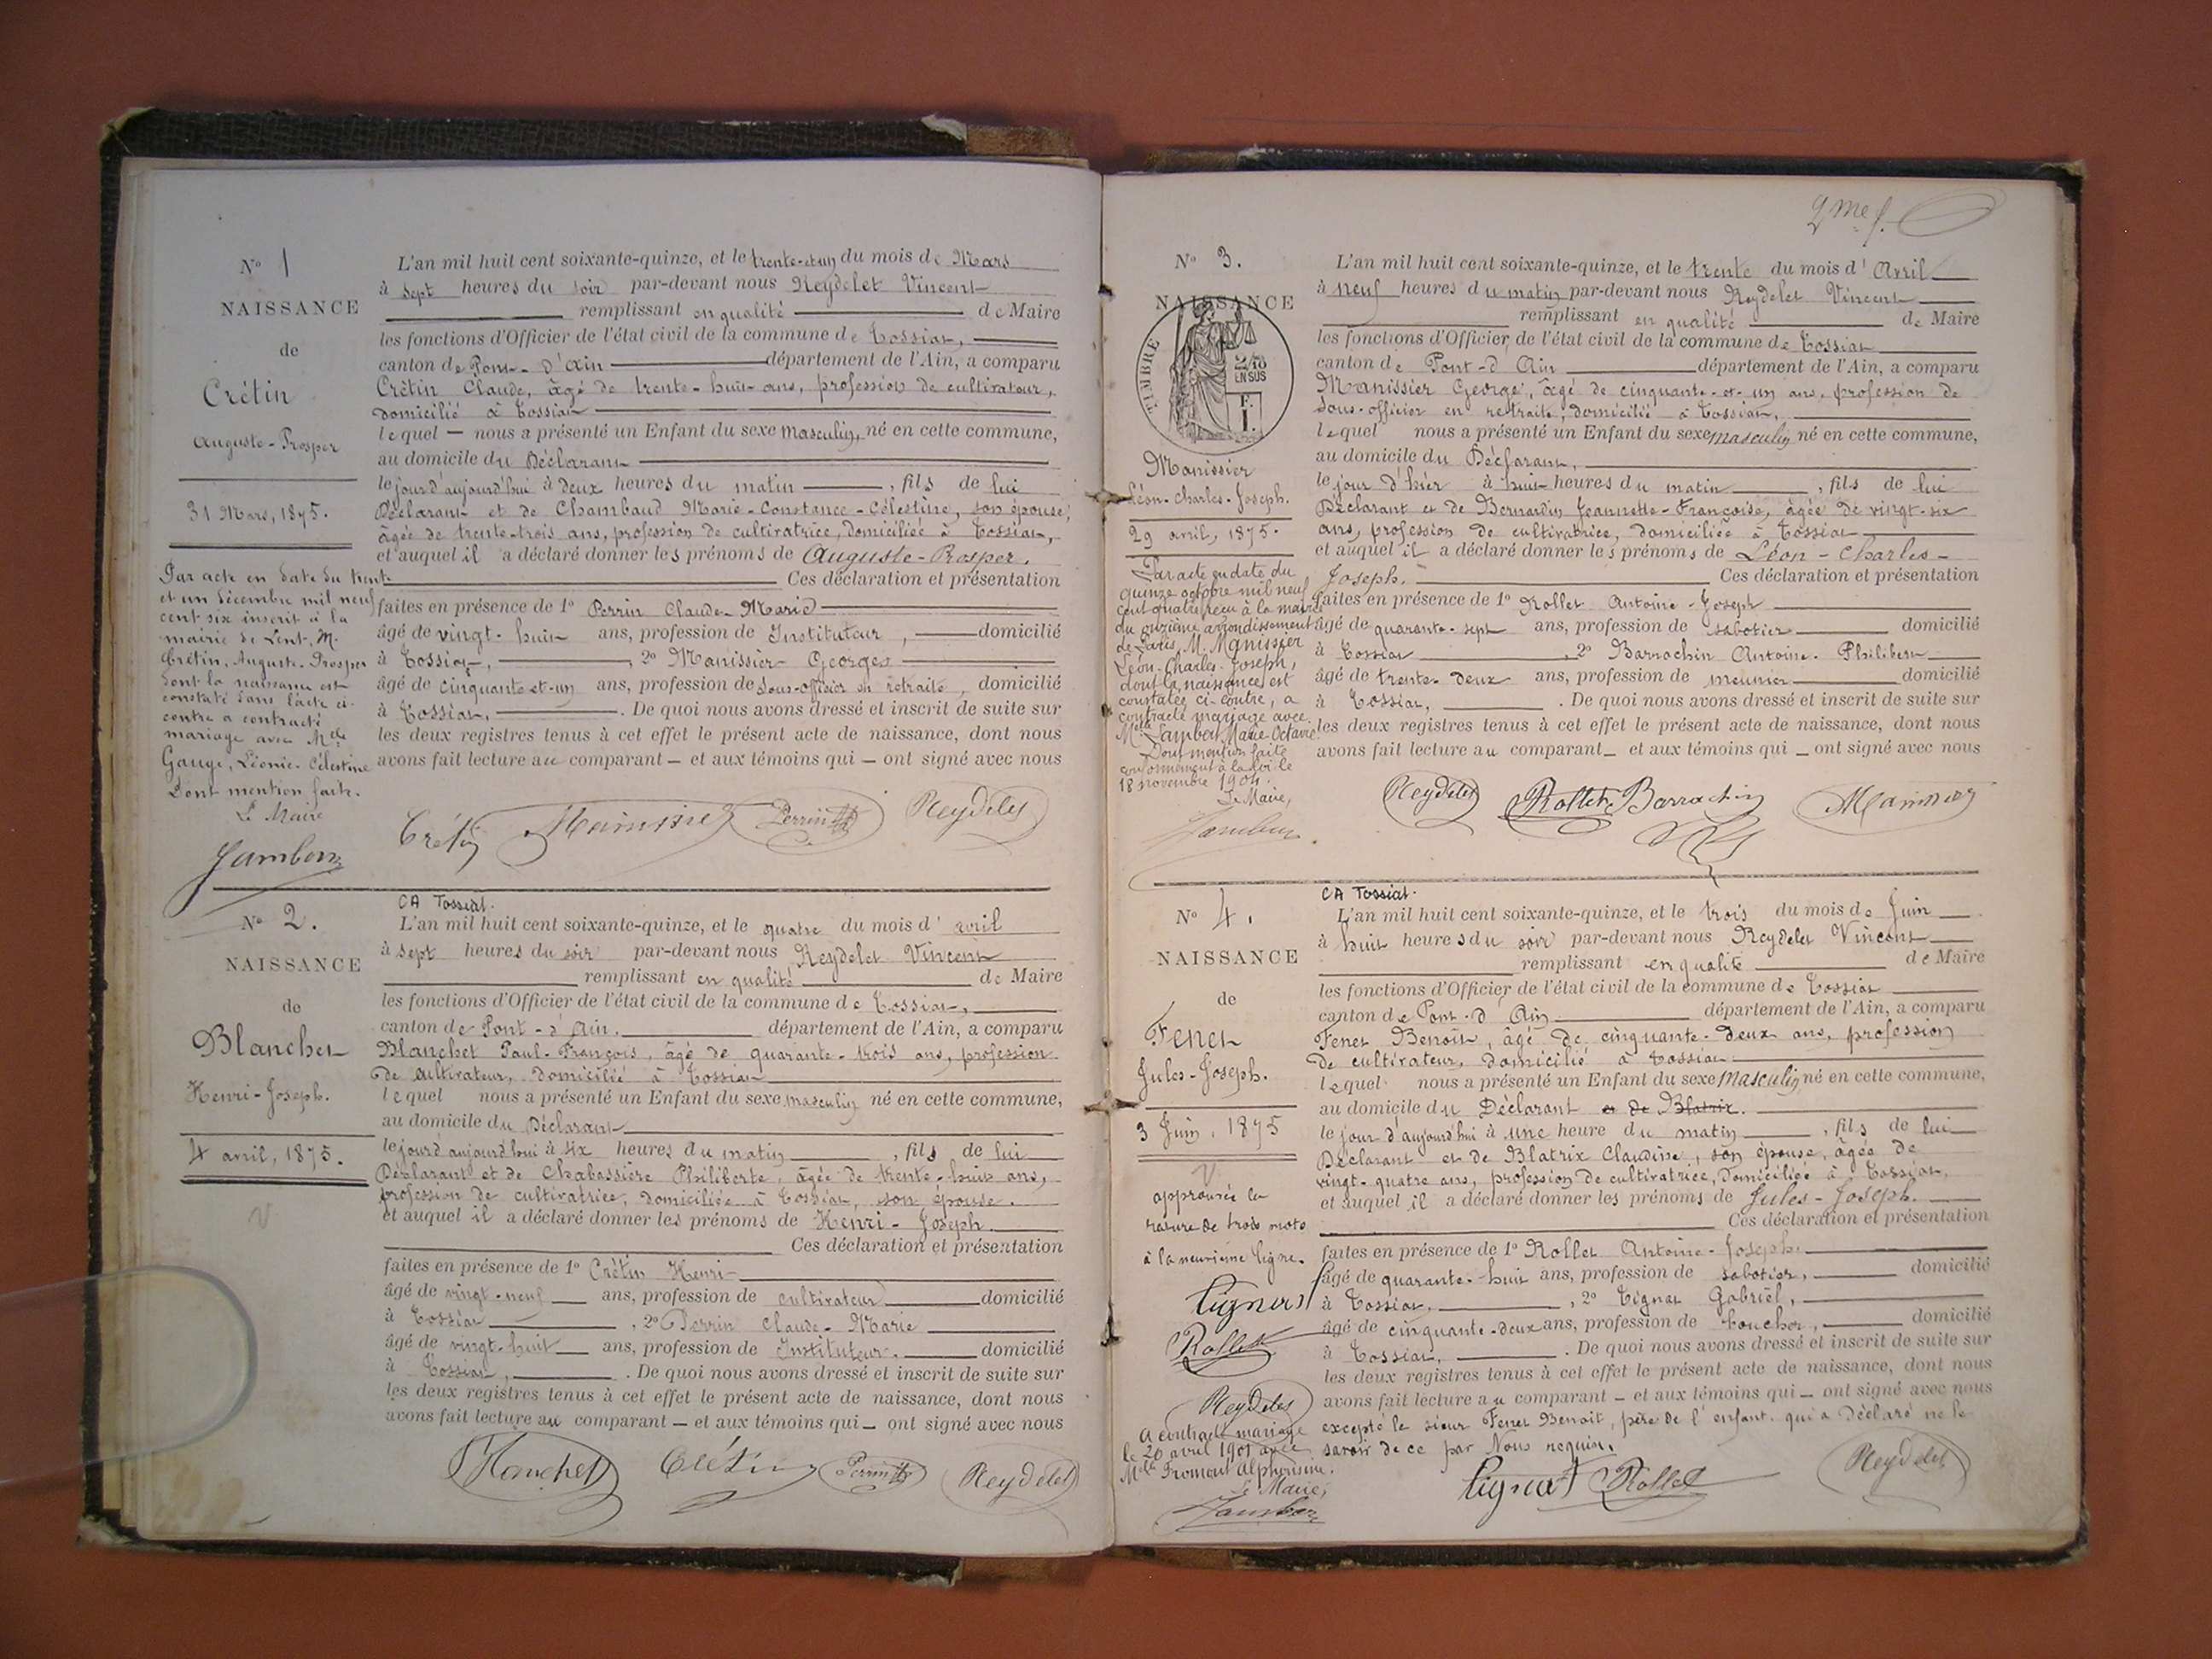 N° 1
NAISSANCE
de
Crétin
Auguste-Prosper
31 Mars, 1875.
Par acte en date du trente
et un décembre mil neuf
cent six inscrit à la
mairie de Lent, M.
Crétin, Auguste-Prosper
dont la naissance est
constaté dans l'acte ci-
contre a contracté
mariage avec Melle
Gauge, Léonie-Célestine
Dont mention faite.
Le Maire
Jambon
L'an mil huit cent soixante-quinze, et le trente-et-un du mois de Mars
à sept heures du soir par-devant nous Reydelet Vincent
remplissant en qualité de Maire
les fonctions d'Officier de l'état civil de la commune de Tossiat,
canton de Pont-d'Ain département de l'Ain, a comparu
Crétin Claude, âgé de trente-huit ans, profession de cultivateur,
domicilié à Tossiat
lequel — nous a présenté un Enfant du sexe masculin, né en cette commune,
au domicile du Déclarant
le jour d'aujourd'hui à deux heures du matin , fils de lui
Déclarant et de Chambaud Marie-Constance-Célestine, son épouse,
âgée de trente-trois ans, profession de cultivatrice, domiciliée à Tossiat,
et auquel il a déclaré donner les prénoms de Auguste-Prosper.
Ces déclaration et présentation
faites en présence de 1° Perrin Claude-Marie
âgé de vingt-huit ans, profession de Instituteur, domicilié
à Tossiat, , 2° Manissier Georges
âgé de cinquante-et-un ans, profession de sous-officier en retraite, domicilié
à Tossiat, . De quoi nous avons dressé et inscrit de suite sur
les deux registres tenus à cet effet le présent acte de naissance, dont nous
avons fait lecture au comparant — et aux témoins qui — ont signé avec nous
Crétin Manissier Perrin Reydelet
N° 2.
NAISSANCE
de
Blanchet
Henri-Joseph.
4 avril, 1875.
V
CA Tossiat.
L'an mil huit cent soixante-quinze, et le quatre du mois d'avril
à sept heures du soir par-devant nous Reydelet Vincent
remplissant en qualité de Maire
les fonctions d'Officier de l'état civil de la commune de Tossiat,
canton de Pont-d'Ain. département de l'Ain, a comparu
Blanchet Paul-François, âgé de quarante-trois ans, profession
de cultivateur, domicilié à Tossiat
lequel nous a présenté un Enfant du sexe masculin né en cette commune,
au domicile du Déclarant
le jour d'aujourd'hui à six heures du matin , fils de lui
Déclarant et de Chabassière Philiberte, âgée de trente-huit ans,
profession de cultivatrice, domiciliée à Tossiat, son épouse.
et auquel il a déclaré donner les prénoms de Henri-Joseph.
Ces déclaration et présentation
faites en présence de 1° Crétin Henri
âgé de vingt-neuf ans, profession de cultivateur domicilié
à Tossiat , 2° Perrin Claude-Marie
âgé de vingt-huit ans, profession de Instituteur. domicilié
à Tossiat, . De quoi nous avons dressé et inscrit de suite sur
les deux registres tenus à cet effet le présent acte de naissance, dont nous
avons fait lecture au comparant — et aux témoins qui — ont signé avec nous
Blanchet Crétin Perrin Reydelet
2me f.
N° 3.
NAISSANCE
TIMBRE
2/10
EN SUS
F.
1.
Manissier
Léon-Charles-Joseph.
29 avril, 1875.
Par acte en date du
quinze octobre mil neuf
cent quatre reçu à la mairie
du onzième arrondissement
de Paris, M. Manissier
Léon-Charles-Joseph,
dont la naissance est
constatée ci-contre, a
contracté mariage avec
Melle Lambert Marie-Octavie
Dont mention faite
conformément à la loi le
18 novembre 1904.
Le Maire,
Jambon
L'an mil huit cent soixante-quinze, et le trente du mois d'Avril
à neuf heures du matin par-devant nous Reydelet Vincent
remplissant en qualité de Maire
les fonctions d'Officier de l'état civil de la commune de Tossiat
canton de Pont-d'Ain département de l'Ain, a comparu
Manissier George, âgé de cinquante-et-un ans, profession de
sous-officier en retraite, domicilié à Tossiat,
lequel nous a présenté un Enfant du sexe masculin né en cette commune,
au domicile du Déclarant,
le jour d'hier à huit heures du matin , fils de lui
Déclarant et de Bernardin Jeannette-Françoise, âgée de vingt-six
ans, profession de cultivatrice, domiciliée à Tossiat
et auquel il a déclaré donner les prénoms de Léon-Charles-
Joseph. Ces déclaration et présentation
faites en présence de 1° Rollet Antoine-Joseph
âgé de quarante-sept ans, profession de sabotier domicilié
à Tossiat , 2° Barrachin Antoine-Philibert
âgé de trente-deux ans, profession de meunier domicilié
à Tossiat, . De quoi nous avons dressé et inscrit de suite sur
les deux registres tenus à cet effet le présent acte de naissance, dont nous
avons fait lecture au comparant — et aux témoins qui — ont signé avec nous
Reydelet Rollet Barrachin Manissier
N° 4.
NAISSANCE
de
Fenet
Jules-Joseph.
3 Juin, 1875
V
approuvée la
rature de trois mots
à la neuvième ligne.
Tignat
Rollet
Reydelet
A contracté mariage
le 20 avril 1901 avec
Melle Fromont Alphonsine.
Le Maire,
Jambon
CA Tossiat.
L'an mil huit cent soixante-quinze, et le trois du mois de Juin
à huit heures du soir par-devant nous Reydelet Vincent
remplissant en qualité de Maire
les fonctions d'Officier de l'état civil de la commune de Tossiat
canton de Pont-d'Ain département de l'Ain, a comparu
Fenet Benoît, âgé de cinquante-deux ans, profession
de cultivateur, domicilié à Tossiat
lequel nous a présenté un Enfant du sexe masculin né en cette commune,
au domicile du Déclarant et de Blatrix.
le jour d'aujourd'hui à une heure du matin , fils de lui
Déclarant et de Blatrix Claudine, son épouse, âgée de
vingt-quatre ans, profession de cultivatrice, domiciliée à Tossiat,
et auquel il a déclaré donner les prénoms de Jules-Joseph.
Ces déclaration et présentation
faites en présence de 1° Rollet Antoine-Joseph.
âgé de quarante-huit ans, profession de sabotier, domicilié
à Tossiat, , 2° Tignat Gabriel,
âgé de cinquante-deux ans, profession de boucher, domicilié
à Tossiat, . De quoi nous avons dressé et inscrit de suite sur
les deux registres tenus à cet effet le présent acte de naissance, dont nous
avons fait lecture au comparant — et aux témoins qui — ont signé avec nous
excepté le sieur Fenet Benoit, père de l'enfant qui a déclaré ne le
savoir de ce par Nous requis.
Tignat Rollet Reydelet